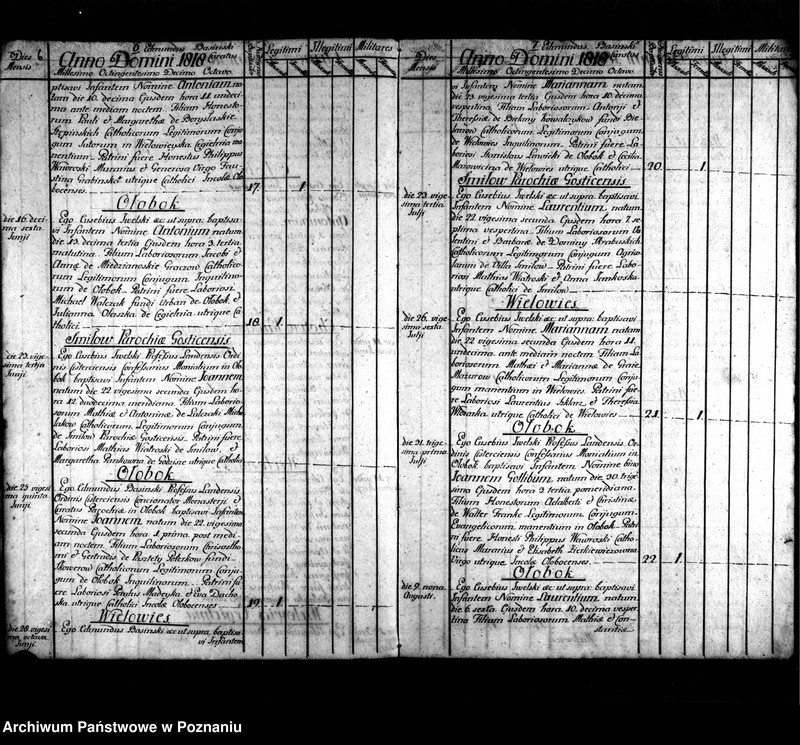 6 Edmundus Basinski Curatus
Dies Mensis
6
Anno Domini 1818
Millesimo Octingentesimo Decimo Octavo
Legitimi
Illegitimi
Militares
ptisavi Infantem Nomine Antoniam na
tam die 10. decima Ejusdem hora 11. undeci
ma ante mediam noctem. Filiam Honesto
rum Pauli & Margarethæ de
Catholicorum Legitimorum Conju
gum Sutorum in Wielowieyska Cegielnia ma
nentium. Patrini fuere Honestus Philippus
Waworoski Murarius & Generosa Virgo Fau
stina Grabinska utrique Catholici Incolæ Olo
bocenses.
17.
1
Olobok
die 16. deci
ma sexta
Junji
Ego Eusebius Iwelski ac ut supra baptisa
vi Infantem Nomine Antonium natum
die 13. decima tertia Ejusdem hora 3. tertia
matutina. Filium Laboriosorum Jacobi &
Annæ de Miedzianoskie Graczow Catholico
rum Legitimorum Conjugum Inquilino
rum de Olobok. Patrini fuere Laboriosi
Michael Walczak fundi Urban de Olobok &
Julianna Olaszka de Cegielnia utrique Ca
tholici
18.
1.
Smilow Parochiæ Gosticensis
die 23. vige
sima tertja
Junji
Ego Eusebius Iwelski Profeſsus Landensis Ordi
nis Cisterciensis Confeſsarius Monialium in Olo
bok baptisavi Infantem Nomine Joannem
natum die 22 vigesima secunda Ejusdem ho
ra 12. duodecima meridiana. Filium Laborio
sorum Mathiæ & Antoninæ de
Catholicorum. Legitimorum Conjugum
de Smilow Parochiæ Gosticensis. Patrini fuere
Laboriosi Mathias Wiatroski de Smilow, &
Margaretha Pankowna de utrique Catholici
Olobok
die 25 vigesi
ma quinta
Junji
Ego Edmundus Basinski Profeſsus Landensis
Ordinis Cisterciensis Concionator Monasterji &
Curatus Parochiæ in Olobok baptisavi Infantem
Nomine Joannem natum die 22. vigesima
secunda Ejusdem hora 1 prima. post medi
am noctem. Filium Laboriosorum
& Gertrudis de Pisztety Peterkow fundi
Skowerow Catholicorum Legitimorum Conju
gum de Olobok Inquilinorum. Patrini fu
ere Laboriosi Paulus Madeyska & Eva Dacho
ska utrique Catholici Incolæ Olobocenses
19.
1.
Wielowies
die 28. vigesi
ma octava
Junji
Ego Edmundus Basinski ac ut supra baptisa
vi Infantem
7 Edmundus Basinski Curatus
Dies Mensis
Anno Domini 1818
Millesimo Octingentesimo Decimo Octavo
Legitimi
Illegitimi
Militares
vi Infantem Nomine Mariannam natam
die 23. vigesima tertia Ejusdem hora 10. decima
vespertina. Filiam Laboriosorum Antonji &
Theresiæ de Bielany Kowalczykow fundi Bie
lanow Catholicorum Legitimorum Conjugum
de Wielowies Inquilinorum. Patrini fuere La
boriosi Stanislaus Lewicki de Olobok & Cecilia
Mazurowicina de Wielowies utrique Catholici
20.
1.
Smilow Parochiæ Gosticensis
die 23. vige
sima tertia
Julji
Ego Eusebius Iwelski ac ut supra baptisavi
Infantem Nomine Laurentium natum
die 22 vigesima secunda Ejusdem hora 7. se
ptima vespertina. Filium Laboriosorum Va
lentini & Barbaræ de Dominy
Catholicorum Legitimorum Conjugum Agrico
larum de Villa Smilow. Patrini fuere Labo
riosi Mathias Wiatroski & Anna
utrique Catholici de Smilow
Wielowies
die 26. vige
sima sexta
Julji
Ego Eusebius Iwelski ac ut supra baptisavi
Infantem Nomine Mariannam natam
die 22 vigesima secunda Ejusdem hora 11.
undecima. ante mediam noctem. Filiam La
boriosorum Mathæi & Mariannæ de
Mazurow Catholicorum Legitimorum Conju
gum manentium in Wielowies. Patrini fue
re Laboriosi Laurentius & Theressia
utrique Catholici de Wielowies
21.
1.
Olobok
die 31. trige
sima prima
Julji
Ego Eusebius Iwelski Profeſsus Landensis Or
dinis Cisterciensis Confeſsarius Monialium in
Olobok baptisavi Infantem Nomine bino
Joannem Gottlibum natum die 30. trige
sima Ejusdem hora 3 tertia pomeridiana.
Filium Honestorum Adalberti & Christinæ
de Walter Franke Legitimorum Conjugum
Evangelicorum manentium in Olobok. Patri
ni fuere. Honesti Philippus Waworoski Catho
licus Murarius & Elisabeth Zierkiewiczowna
Virgo utrique. Incolæ Olobocenses.
22.
1.
Olobok
die 9. nona
Augusti.
Ego Eusebius Iwelski ac ut supra baptisavi
Infantem Nomine Laurentium natum
die 6. sexta Ejusdem hora 10. decima vesper
tina Filium Laboriosorum Mathiæ & Con
stantiæ
Archiwum Państwowe w Poznaniu